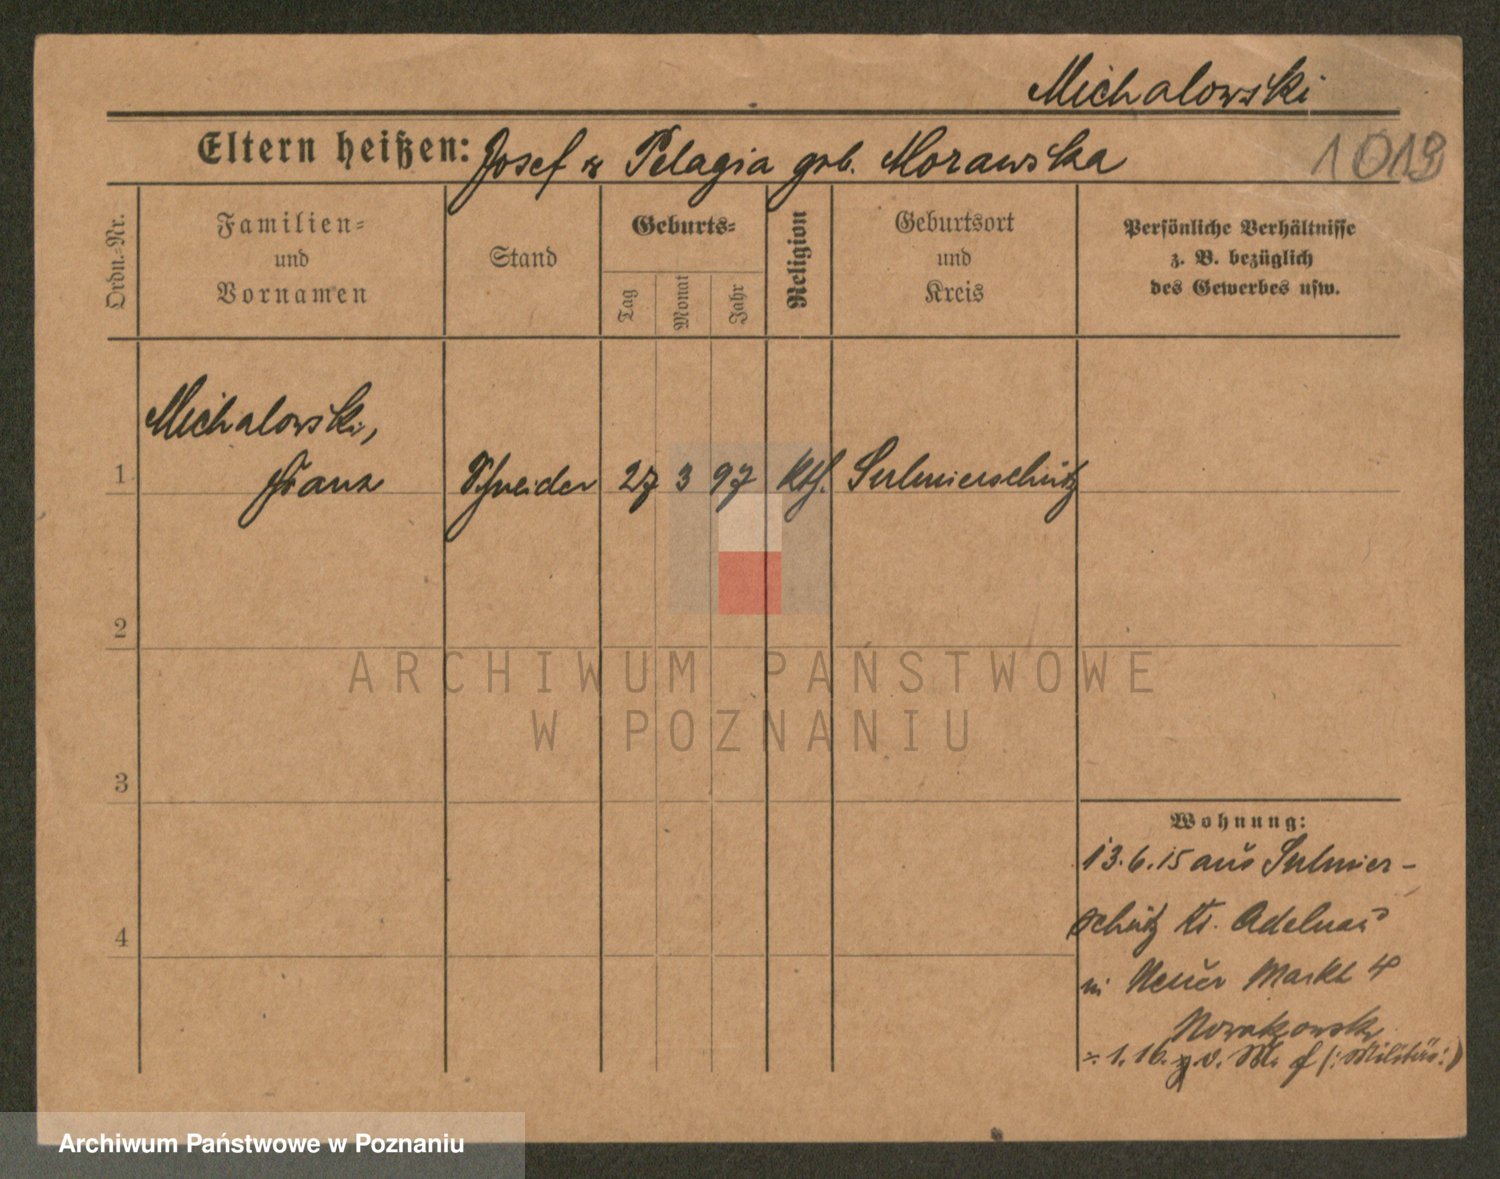 Michalowski
Eltern heißen: Josef & Pelagia geb. Morawska
1019
Ordn.-Nr.
Familien-
und
Vornamen
Stand
Geburts-
Tag
Monat
Jahr
Religion
Geburtsort
und
Kreis
Persönliche Verhältnisse
z. B. bezüglich
des Gewerbes usw.
Michalowski,
1 Franz Schneider 27 3 97 kth. Sulmierschütz
2
3
4
Wohnung:
13.6.15 aus Sulmier-
schütz Kr. Adelnau
in Neuer Markt 4
Nowakowski
1.16. v. (:Militär:)
ARCHIWUM PAŃSTWOWE
W POZNANIU
Archiwum Państwowe w Poznaniu